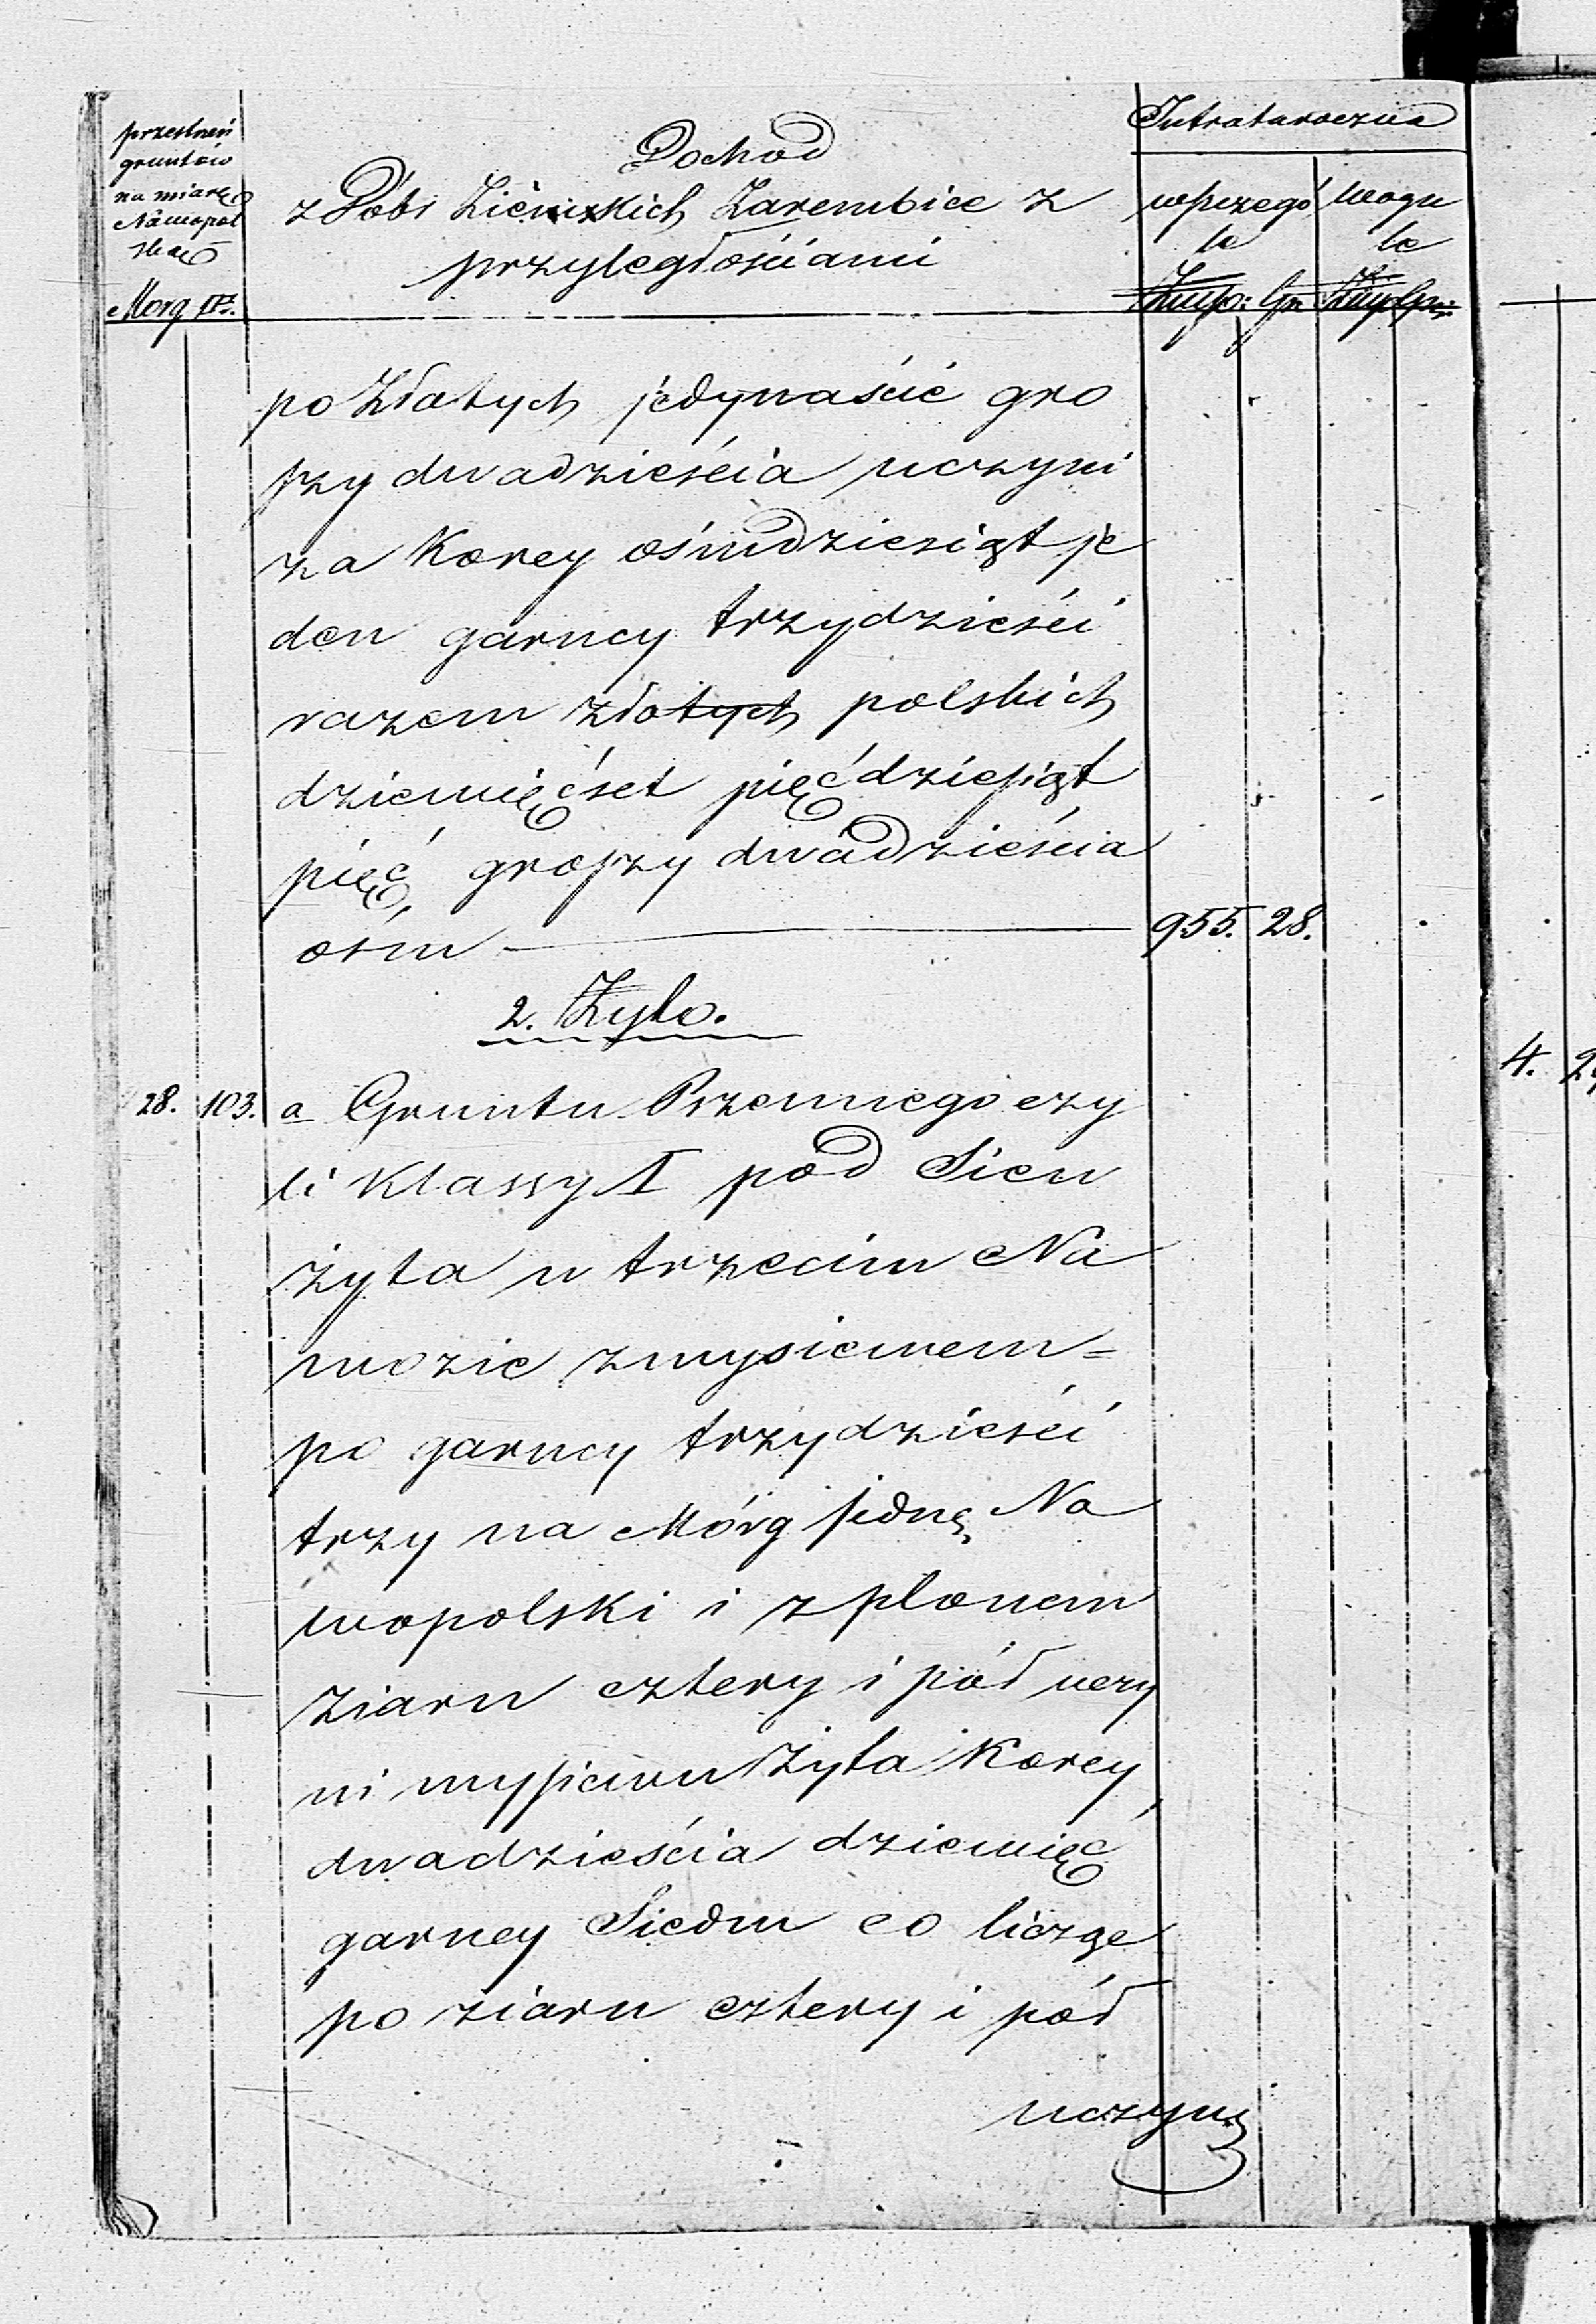 przestrzeń
gruntów
na miarę
Nowopol
ską
Morg Pr.
Dochod
z Dóbr Ziemskich Zarembice z
przyległościami
Intrata roczna
wszczegó
le
wogu
le
Złłłp: Gr
po Złotych jedynaście gro
szy dwadzieścia uczyni
za Korcy ośmdziesiąt je
den garncy trzydzieści
razem złotych polskich
dziewięćset pięćdziesiąt
pięć, groszy dwadzieścia
ośm 955. 28.
2. Żyto.
28. 103. a Gruntu Pszennego czy
li Klassy I pod Siew
żyta w trzecim Na
wozie zwysiewem=
po garncy trzydzieści
trzy na Mórg jednę No
wopolski i z plonem
Ziarn cztery i pół uczy
ni wysiewu Żyta Korcy
dwadzieścia dziewięć
garncy Siedm co licząc
po ziarn cztery i pół
uczyni
4.